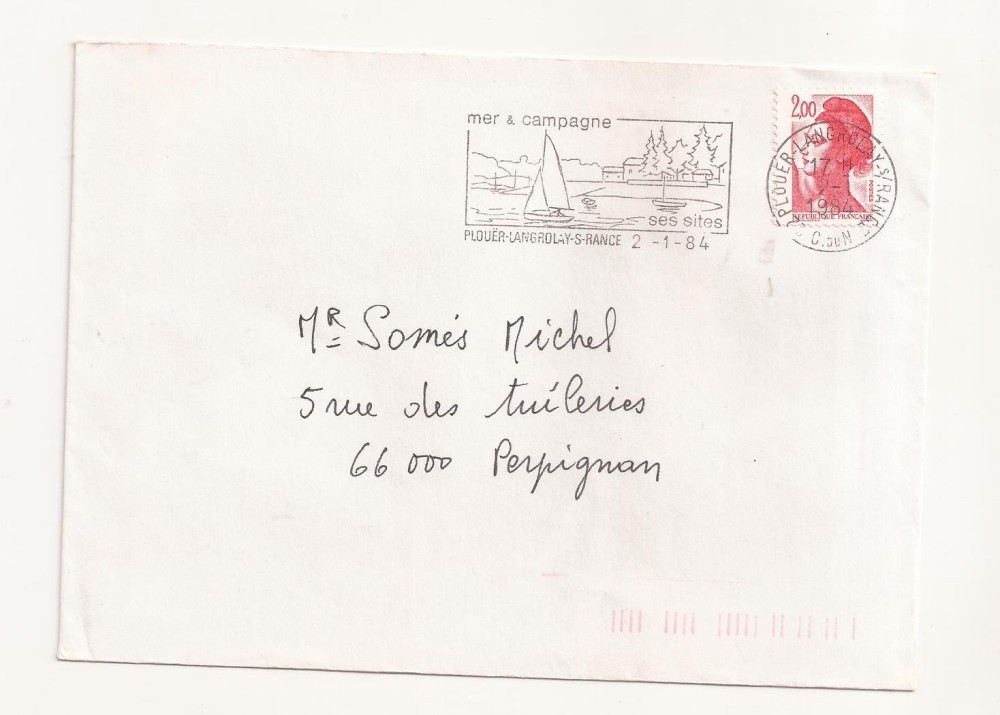 mer & campagne
ses sites
PLOUËR-LANGROLAY-S-RANCE 2 -1-84
2,00
PLOUER-LANGROLAY-S/RANCE
17 H
2-1
1984
POSTES
REPUBLIQUE FRANCAISE
C. DU N
MR Somés Michel
5 rue des tuileries
66 000 Perpignan